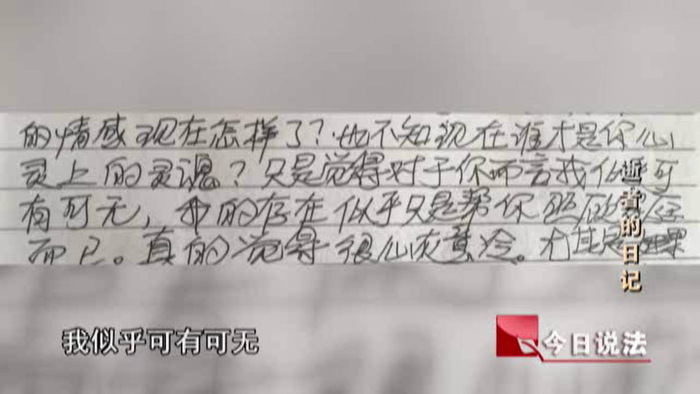 的情感现在怎样了？也不知现在谁才是你心
灵上的灵魂？只是觉得对于你而言我似乎可
有可无，我的存在似乎只是帮你
而已。真的觉得很心灰意冷。尤其是
逝者的日记
我似乎可有可无
今日说法